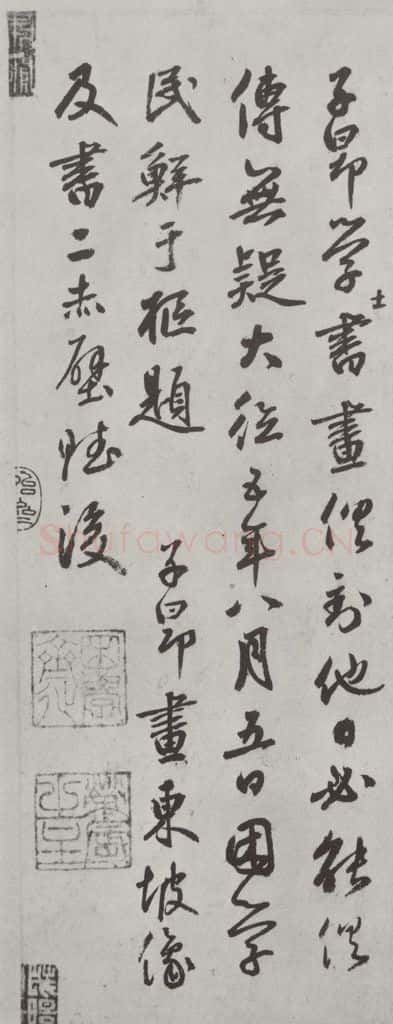 子昂学士書畫俱到他日必能俱
傳無疑大德五年八月五日困学
民鮮于枢題 子昂畫東坡像
及書二赤壁賦後
Shufawang.CN